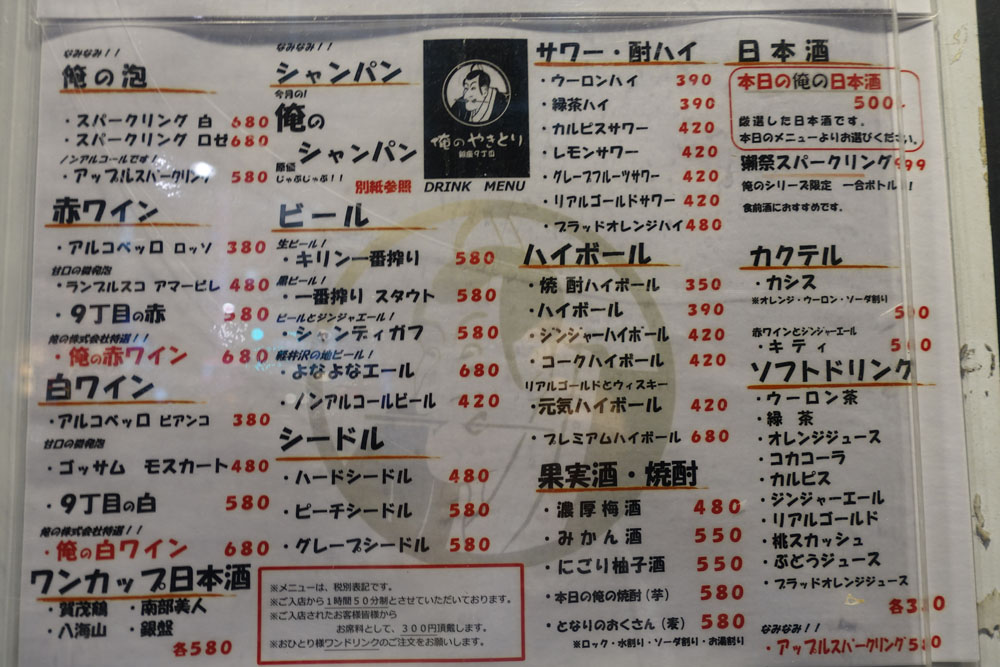 なみなみ！！
俺の泡
・スパークリング 白 680
・スパークリング ロゼ 680
ノンアルコールです！
・アップルスパークリング 580
赤ワイン
・アルコペッロ ロッソ 380
甘口の微発泡
・ランブルスコ アマービレ 480
・9丁目の赤 580
俺の株式会社特選！！
・俺の赤ワイン 680
白ワイン
・アルコペッロ ビアンコ 380
甘口の微発泡
・ゴッサム モスカート 480
・9丁目の白 580
俺の株式会社特選！！
・俺の白ワイン 680
ワンカップ日本酒
・賀茂鶴 ・南部美人
・八海山 ・銀盤
各580
なみなみ！！
シャンパン
今月の！
俺の
シャンパン
原価
じゃぶじゃぶ！！
別紙参照
ビール
生ビール！
・キリン一番搾り 580
黒ビール！
・一番搾り スタウト 580
ビールとジンジャエール！
・シャンディガフ 580
軽井沢の地ビール！
・よなよなエール 680
・ノンアルコールビール 420
シードル
・ハードシードル 480
・ピーチシードル 580
・グレープシードル 580
※メニューは、税別表記です。
※ご入店から1時間50分制とさせていただいております。
※ご入店されたお客様皆様から
お席料として、300円頂戴します。
※おひとり様ワンドリンクのご注文をお願いします。
俺のやきとり
銀座9丁目
DRINK MENU
サワー・酎ハイ
・ウーロンハイ 390
・緑茶ハイ 390
・カルピスサワー 420
・レモンサワー 420
・グレープフルーツサワー 420
・リアルゴールドサワー 420
・ブラッドオレンジハイ 480
ハイボール
・焼酎ハイボール 350
・ハイボール 390
・ジンジャーハイボール 420
・コークハイボール 420
リアルゴールドとウィスキー
・元気ハイボール 420
・プレミアムハイボール 680
果実酒・焼酎
・濃厚梅酒 480
・みかん酒 550
・にごり柚子酒 550
・本日の俺の焼酎（芋） 580
・となりのおくさん（麦） 580
※ロック・水割り・ソーダ割り・お湯割り
日本酒
本日の俺の日本酒
500
厳選した日本酒です。
本日のメニューよりお選びください。
獺祭スパークリング 999
俺のシリーズ限定 一合ボトル！
食前酒におすすめです。
カクテル
・カシス
※オレンジ・ウーロン・ソーダ割り
赤ワインとジンジャーエール
・キティ
ソフトドリンク
・ウーロン茶
・緑 茶
・オレンジジュース
・コカコーラ
・カルピス
・ジンジャーエール
・リアルゴールド
・桃スカッシュ
・ぶどうジュース
・ブラッドオレンジジュース
なみなみ！！
・アップルスパークリング 580